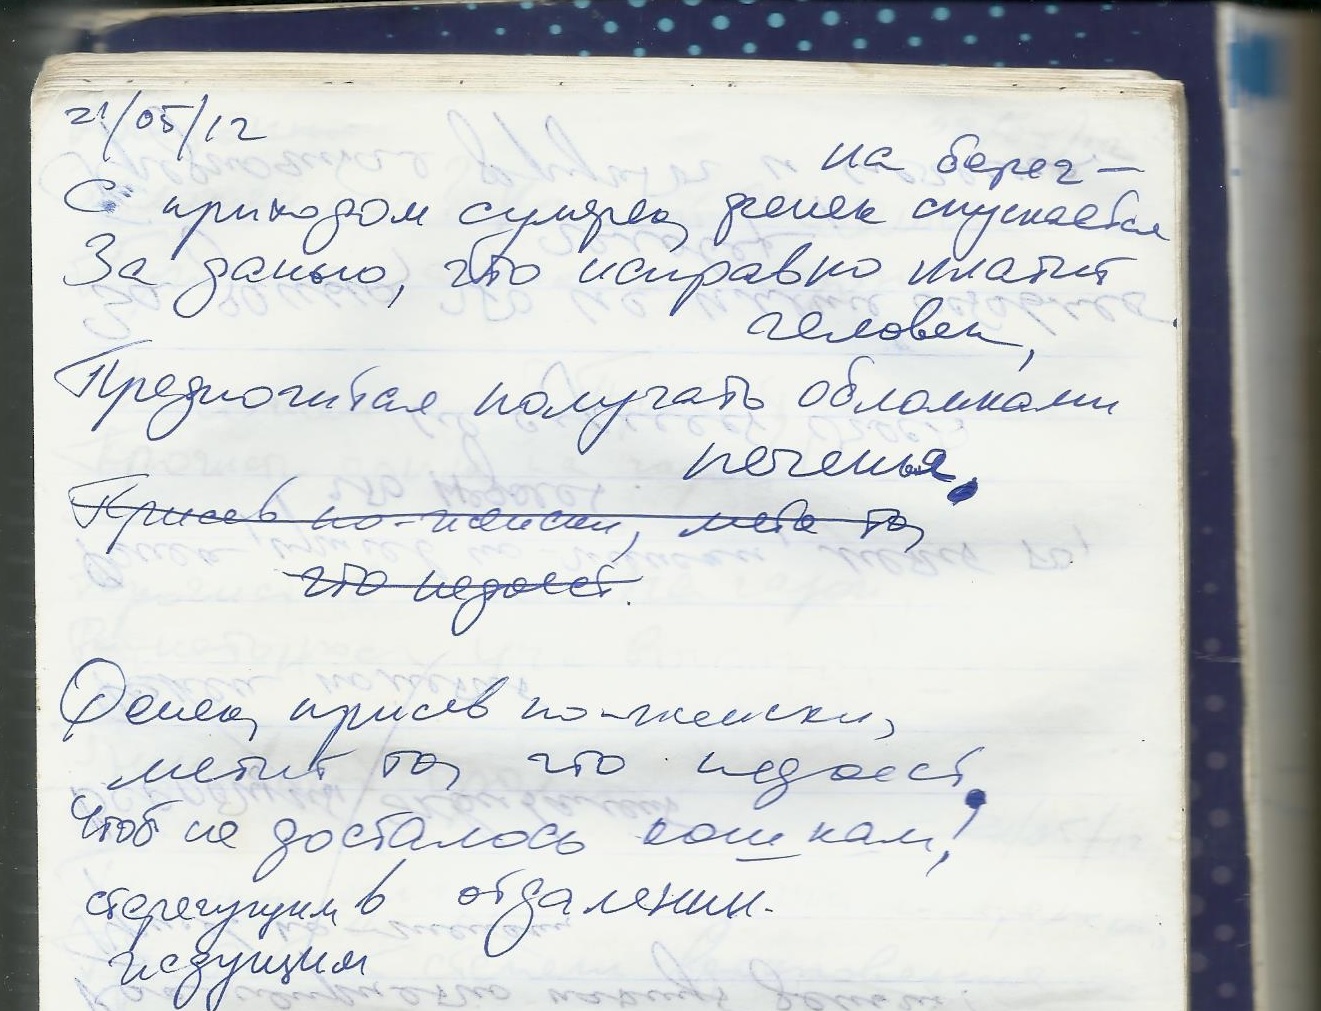 21/05/12
на берег —
С приходом сумрека фенек спускается
За данью, что исправно платит
человек,
Предпочитая получать обломками
печенья,
Присев по-женски, метя то,
что недоест.
Фенек, присев по-женски,
метит то, что недоест,
Чтоб не досталось кошкам,
стерегущим в отдалении.
ждущим